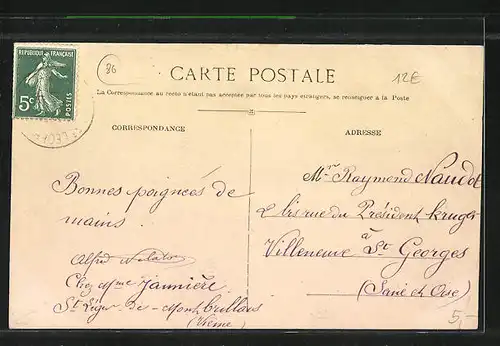 REPUBLIQUE FRANÇAISE
5c
POSTES
86
CARTE POSTALE
12€
La Correspondance au recto n'étant pas acceptée par tous les pays étrangers, se renseigner à la Poste
CORRESPONDANCE
Bonnes poignées de
mains.
Alfred
Chez Mme Jannière
St Léger de Montbrillais
(Vienne)
ADRESSE
Mr Raymond Naudot
2 bis rue du Président Kruger
à
Villeneuve St Georges
(Seine et Oise)
5,-